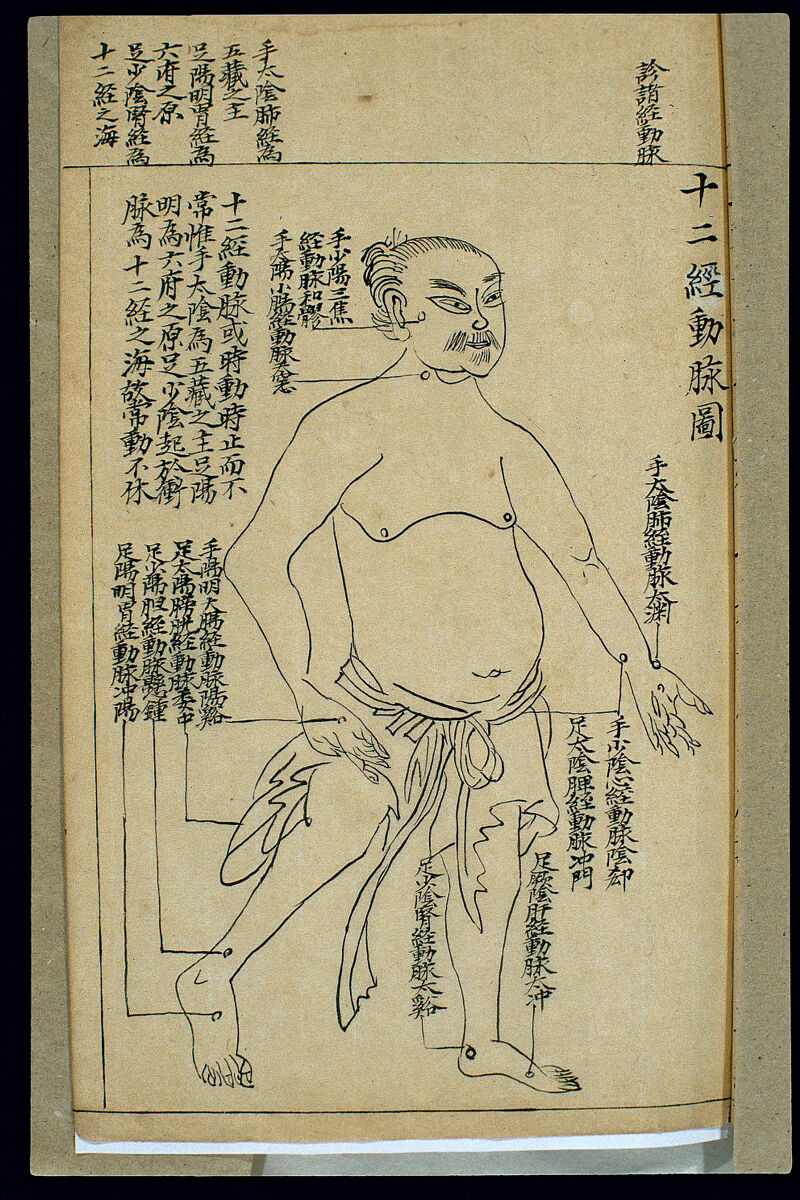 診諸経動脉
手太陰肺経為
五藏之主
足陽明胃経為
六府之原
足少陰腎経為
十二経之海
十二經動脉圖
手太陰肺経動脉太渊
手少陽三焦
経動脉和髎
手太陽小腸経動脉天窓
十二経動脉或時動時止而不
常惟手太陰為五藏之主足陽
明為六府之原足少陰起於衝
脉為十二経之海故常動不休
手陽明大腸経動脉陽谿
足太陽膀胱経動脉委中
足少陽胆経動脉懸鍾
足陽明胃経動脉冲陽
手少陰心経動脉陰郄
足太陰脾経動脉冲門
足厥陰肝経動脉太冲
足少陰腎経動脉太谿